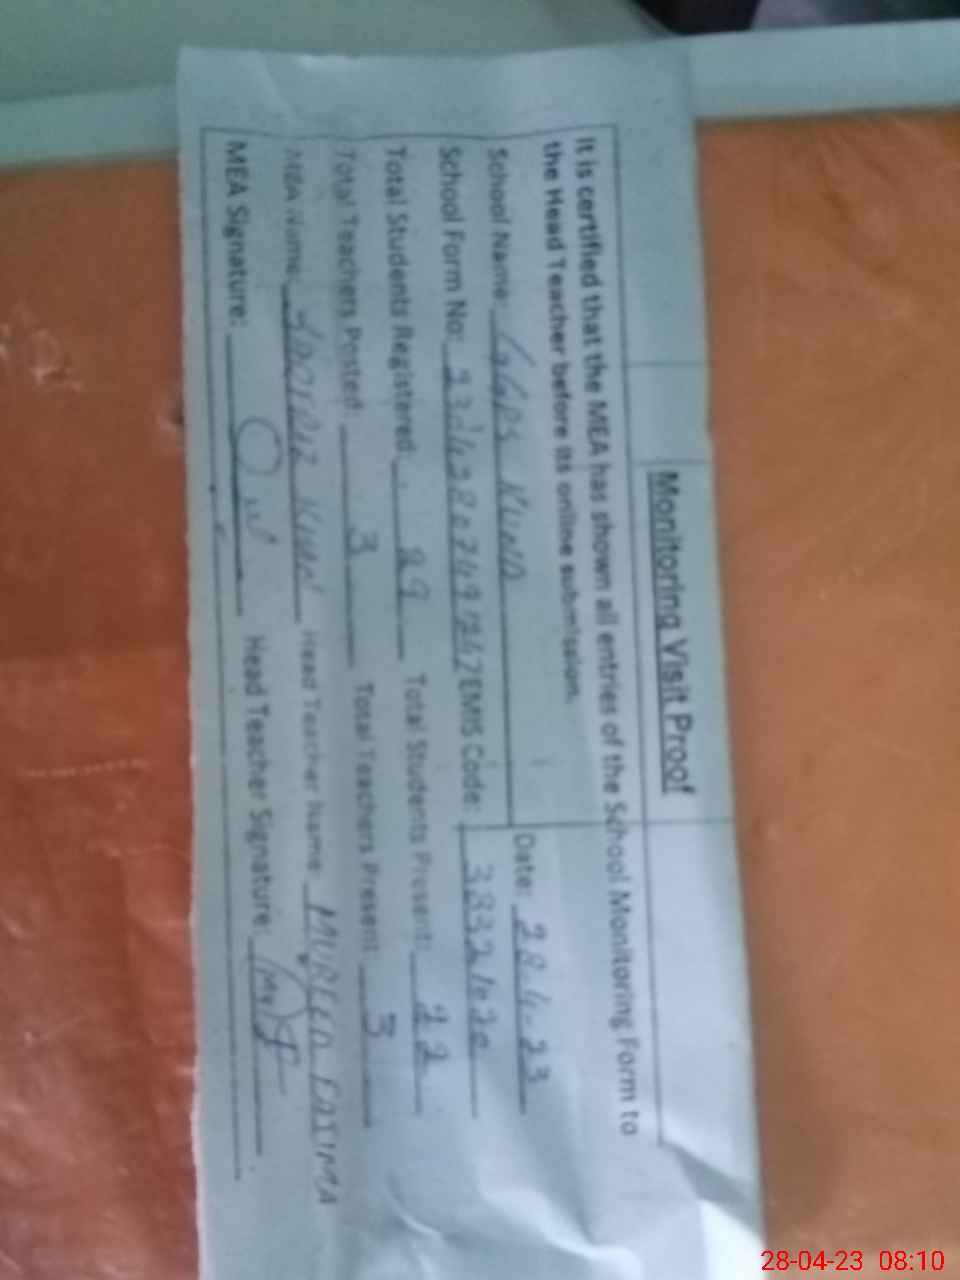 Monitoring Visit Proof
It is certified that the MEA has shown all entries of the School Monitoring Form to
the Head Teacher before its online submission.
School Name: GGPS KUND Date: 28-4-23
School Form No: EMIS Code:
Total Students Registered: 29 Total Students Present: 22
Total Teachers Posted: 3 Total Teachers Present: 3
MEA Name: Head Teacher Name: FATIMA
MEA Signature: Head Teacher Signature:
28-04-23 08:10